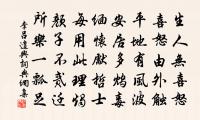 生人無喜怒
喜怒由外觸
平地有風波
安居多鴆毒
緬懷
每用此理燭
顏子不貳過
所樂一瓢足
李呂遣興詞典網集